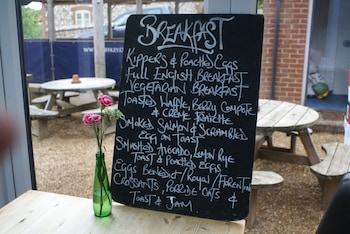 BREAKFAST
KIPPERS & POACHED EGGS
FULL ENGLISH BREAKFAST
VEGETARIAN BREAKFAST
TOASTED WAFFLE, BERRY COMPOTE
& CREME FRAICHE
SMOKED SALMON & SCRAMBLED
EGG ON TOAST
SMASHED AVOCADO, LEMON RYE
TOAST & POACHED EGGS
EGGS BENEDICT / ROYAL / FLORENTINE
CROISSANTS, PORRIDGE OATS &
TOAST & JAM